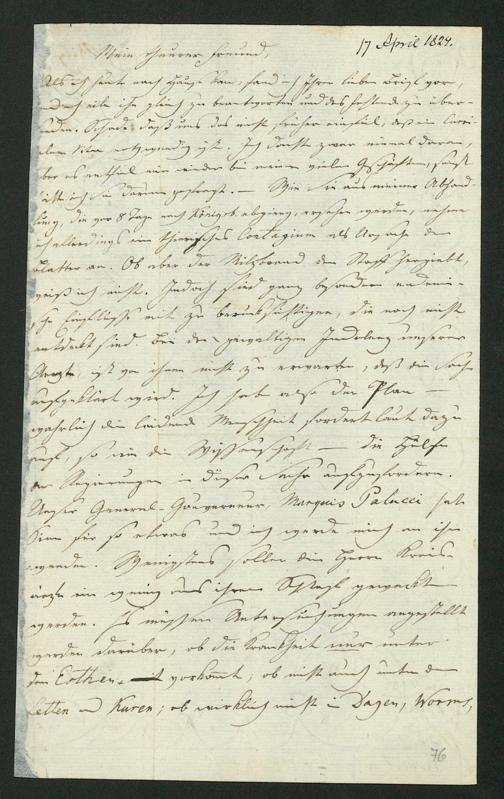 17 April 1824.
Mein theurer Freund,
Als ich heute nach Hause kam, fand ich Ihren lieben Brief vor,
und ich eile ihn gleich zu beantworten und das fehlende zu über-
senden. Schade, daß uns das nicht früher einfiel, daß ein Curri-
culum vitae nothwendig ist. Ich dachte zwar einmal daran,
aber es entfiel mir wieder bei meinen vielen Geschäften, sonst
hätte ich Sie darum gefragt. — Wie Sie aus meiner Abhand-
lung, die vor 8 Tage nach Königsb. abging, ersehen werden, nehme
ich allerdings ein thierisches Contagium als Ursache der
Blatter an. Ob aber der Milzbrand den Stoff hergiebt,
weiß ich nicht. Jedoch sind ganz besondere endemi-
sche Einflüsse mit zu berücksichtigen, die noch nicht
entdeckt sind. Bei der gewaltigen Indolenz unserer
Aerzte, ist von ihnen nicht zu erwarten, daß die Sache
aufgeklärt wird. Ich habe also den Plan —
wahrlich die leidende Menschheit fordert laut dazu
auf, so wie die Wissenschaft — die Hülfe
der Regierungen in dieser Sache aufzufordern.
Unser General-Gouverneur, Marquis Palucci hat
Sinn für so etwas und ich werde mich an ihn
wenden. Wenigstens sollen die Herrn Kreis-
ärzte ein wenig aus ihrem Schlaf geweckt
werden. Es müssen Untersuchungen angestellt
werden darüber, ob die Krankheit nur unter
den Esthen vorkommt, ob nicht auch unter den
Letten und Kuren; ob wirklich nicht in Dagen, Worms,
76